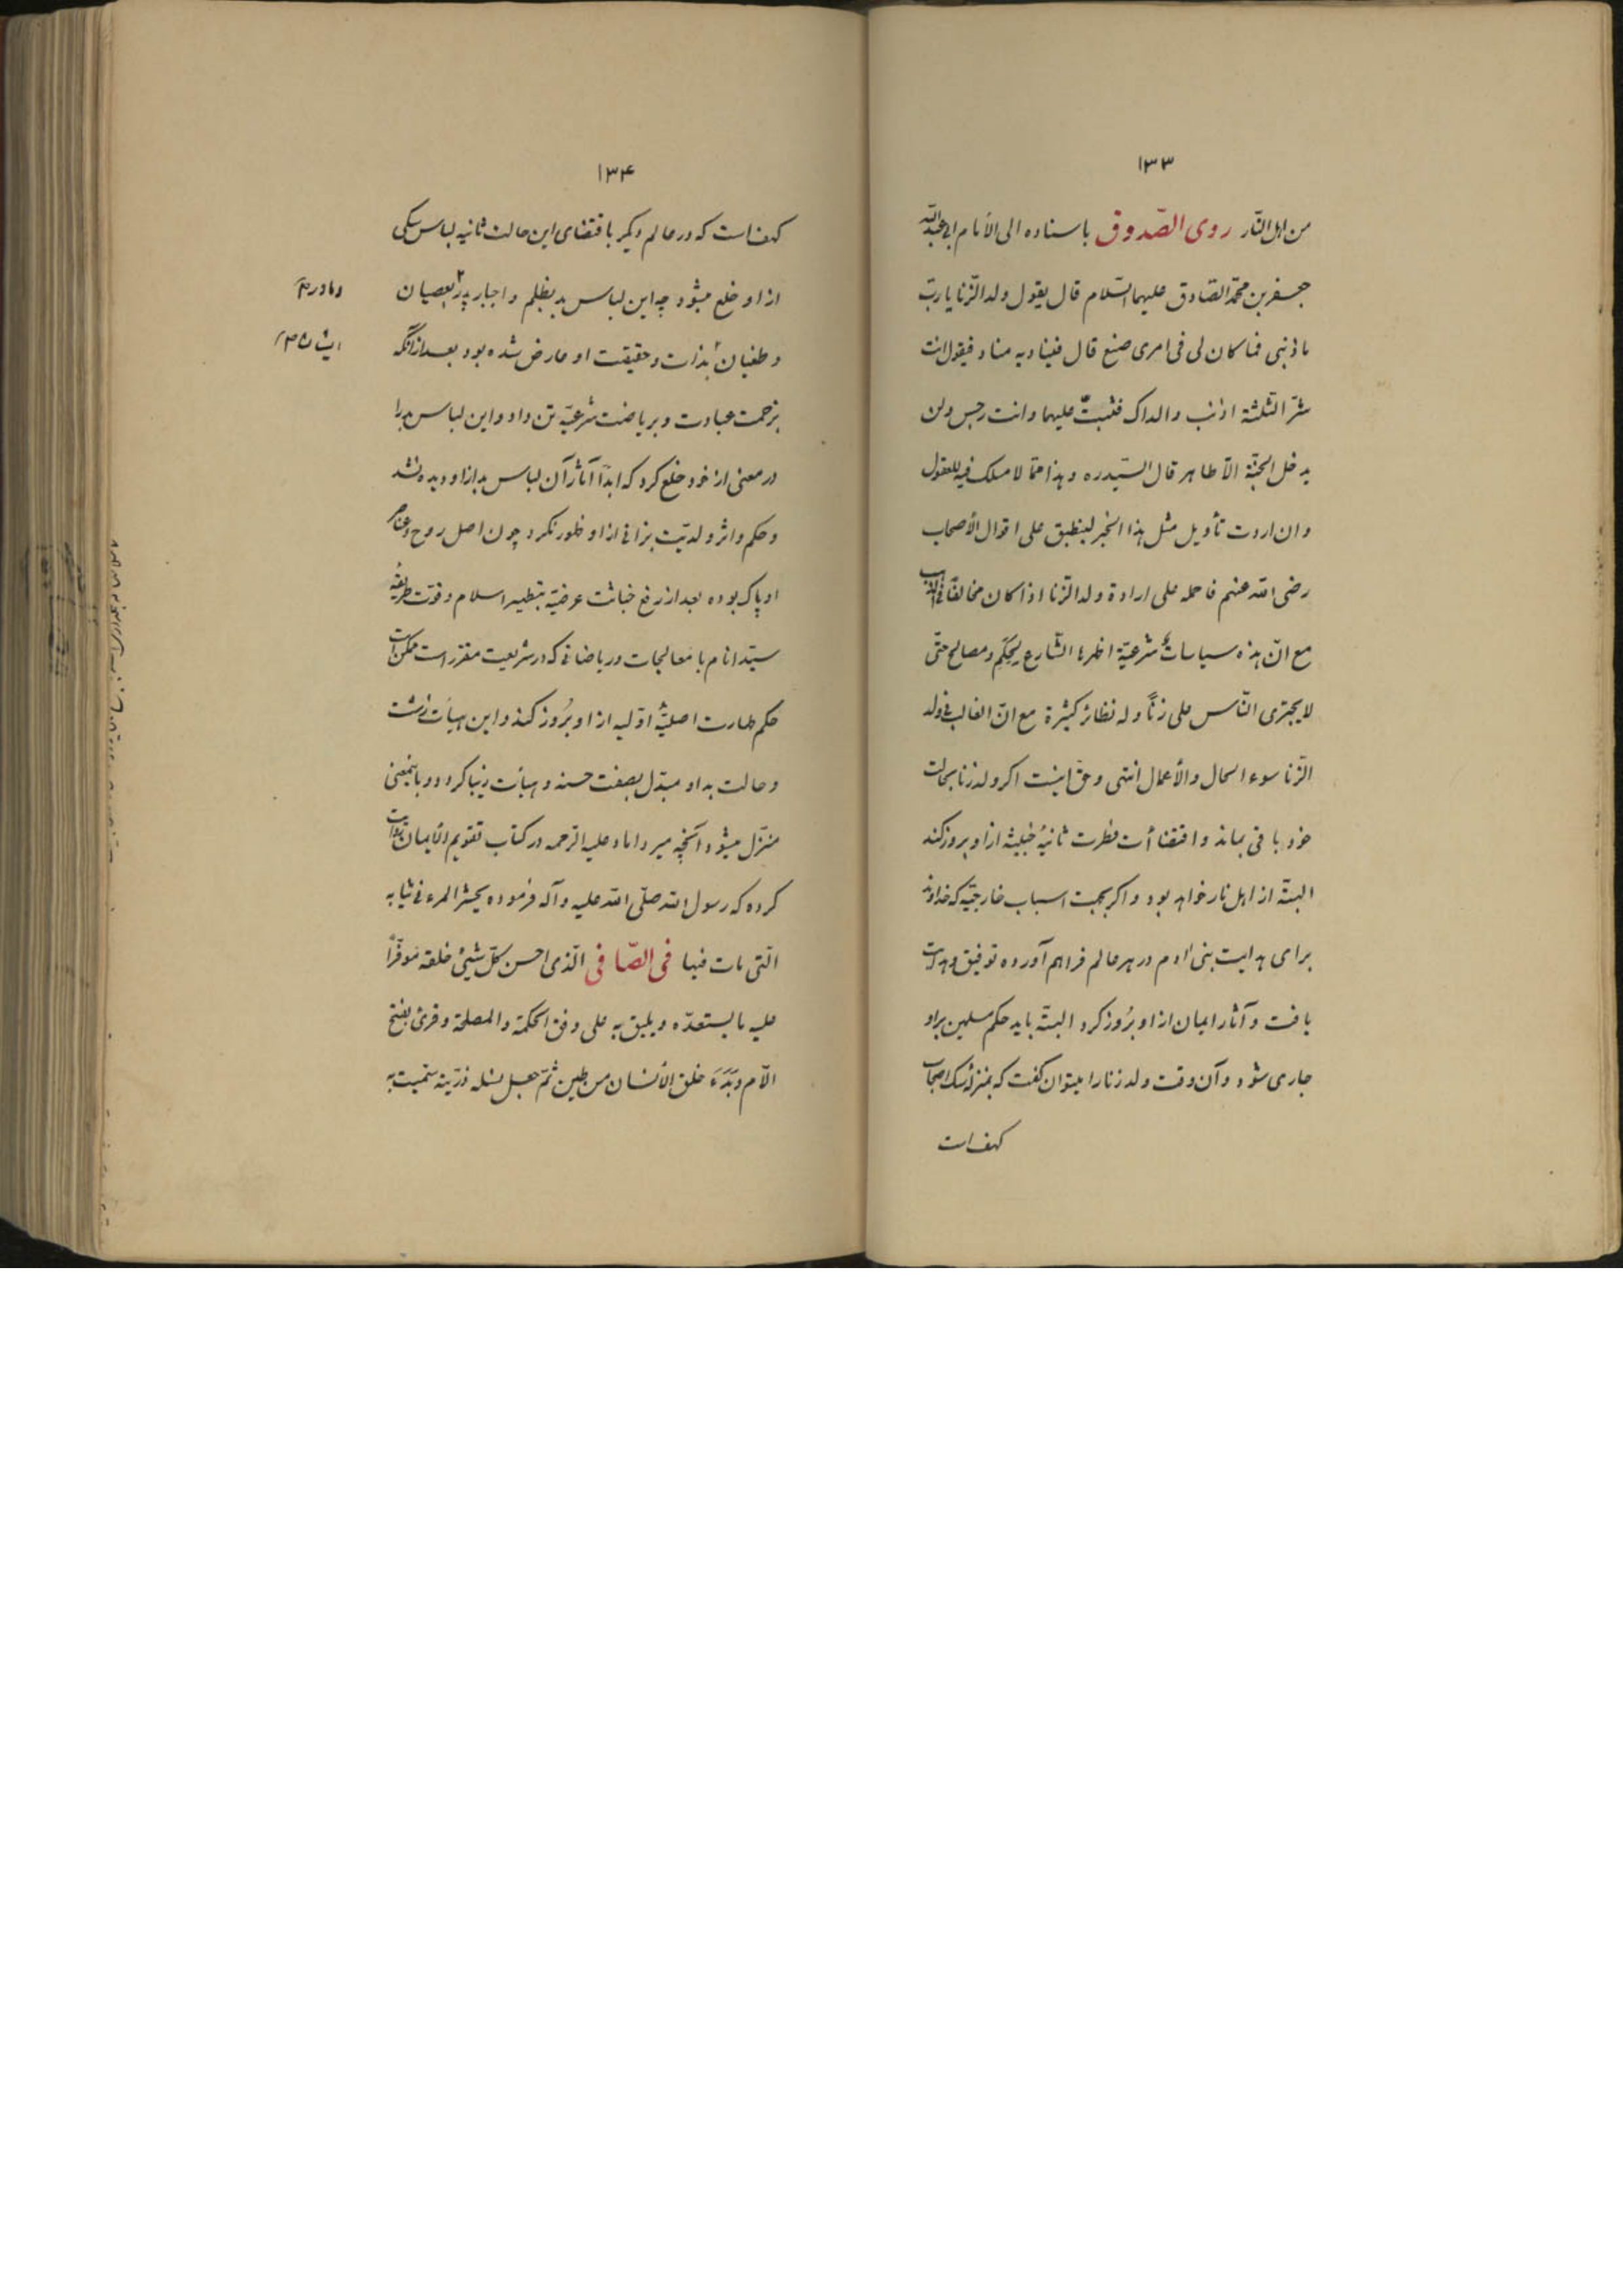 ۱۳۳
من اهل النّار روی الصّدوق باسناده الی الأمام ابی عبد اللّه
جعفر بن محمّد الصّادق علیهما السّلام قال یقول ولد الزّنا یا ربّ
ما ذنبی فما کان لی فی امری صنع قال فینادیه مناد فیقول انت
شرّ الثّلثة اذنب والداک فثبتّ علیهما وانت رجس ولن
یدخل الجنّة الّا طاهر قال السّید ره وهذا ممّا لا مسلک فیه للعقول
وان اردت تأویل مثل هذا الخبر لینطبق علی اقوال الأصحاب
رضی اللّه عنهم فاحمله علی ارادة ولد الزّنا اذا کان مخالفًا فی المذهب
مع انّ هذه سیاسات شرعیّة اظهرها الشّارع لِحِکَمٍ ومصالح حتّی
لا یجتری النّاس علی زنًا وله نظائر کثیرة مع انّ الغالب فی ولد
الزّنا سوء الحال والأعمال انتهی وحق اینست اکر ولد زنا بحالت
خود باقی بماند واقتضاآت فطرت ثانیهٔ خبیثه از او بروز کند
البتّه از اهل نار خواهد بود واکر بجهت اسباب خارجیّه که خداوند
برای هدایت بنی ادم در هر عالم فراهم آورده توفیق وهدایت
یافت وآثار ایمان از او بُروز کرد البتّه باید حکم مسلمین بر او
جاری شود وآن وقت ولد زنا را میتوان کفت که بمنزلهٔ سک اصحاب
کهف است
۱۳۴
کهف است که در عالم دیکر باقتضای این حالت ثانیه لباس سکی
از او خلع میشود چه این لباس بد بظلم واجبار پدر بعصیان
ومادر
وطغیان بذات وحقیقت او عارض شده بود بعد از آنکه
ایشان
بزحمت عبادت وبریاضت شرعیّه تن داد واین لباس بد را
در معنی از خود خلع کرد که ابدًا آثار آن لباس بد از او دیده نشد
وحکم واثر ولدیّت بزانی از او ظهور نکرد چون اصل روح وعناصر
او پاک بوده بعد از رفع خباثت عرضیّه بتطهیر اسلام وقوّت طریقهٔ
سیّد انام با معالجات وریاضاتی که در شریعت مقرّر است ممکن است
حکم طهارت اصلیّهٔ اوّلیه از او بُروز کند واین هیأت زشت
وحالت بد او مبدّل بصفت حسنه وهیأت زیبا کردد وباینمعنی
منزّل میشود آنچه میر داماد علیه الرّحمه در کتاب تقویم الأیمان روایت
کرده که رسول اللّه صلّی اللّه علیه وآله فرموده یحشر المرء فی ثیابه
الّتی مات فیها فی الصّافی الّذی احسن کلّ شیئ خلقه موفّرًا
علیه ما یستعدّه ویلیق به علی وفق الحکمة والمصلحة وقرئ بفتح
اللّام وبَدَءَ خلق الأنسان من طین ثمّ جعل نسله ذرّیته سمّیت به